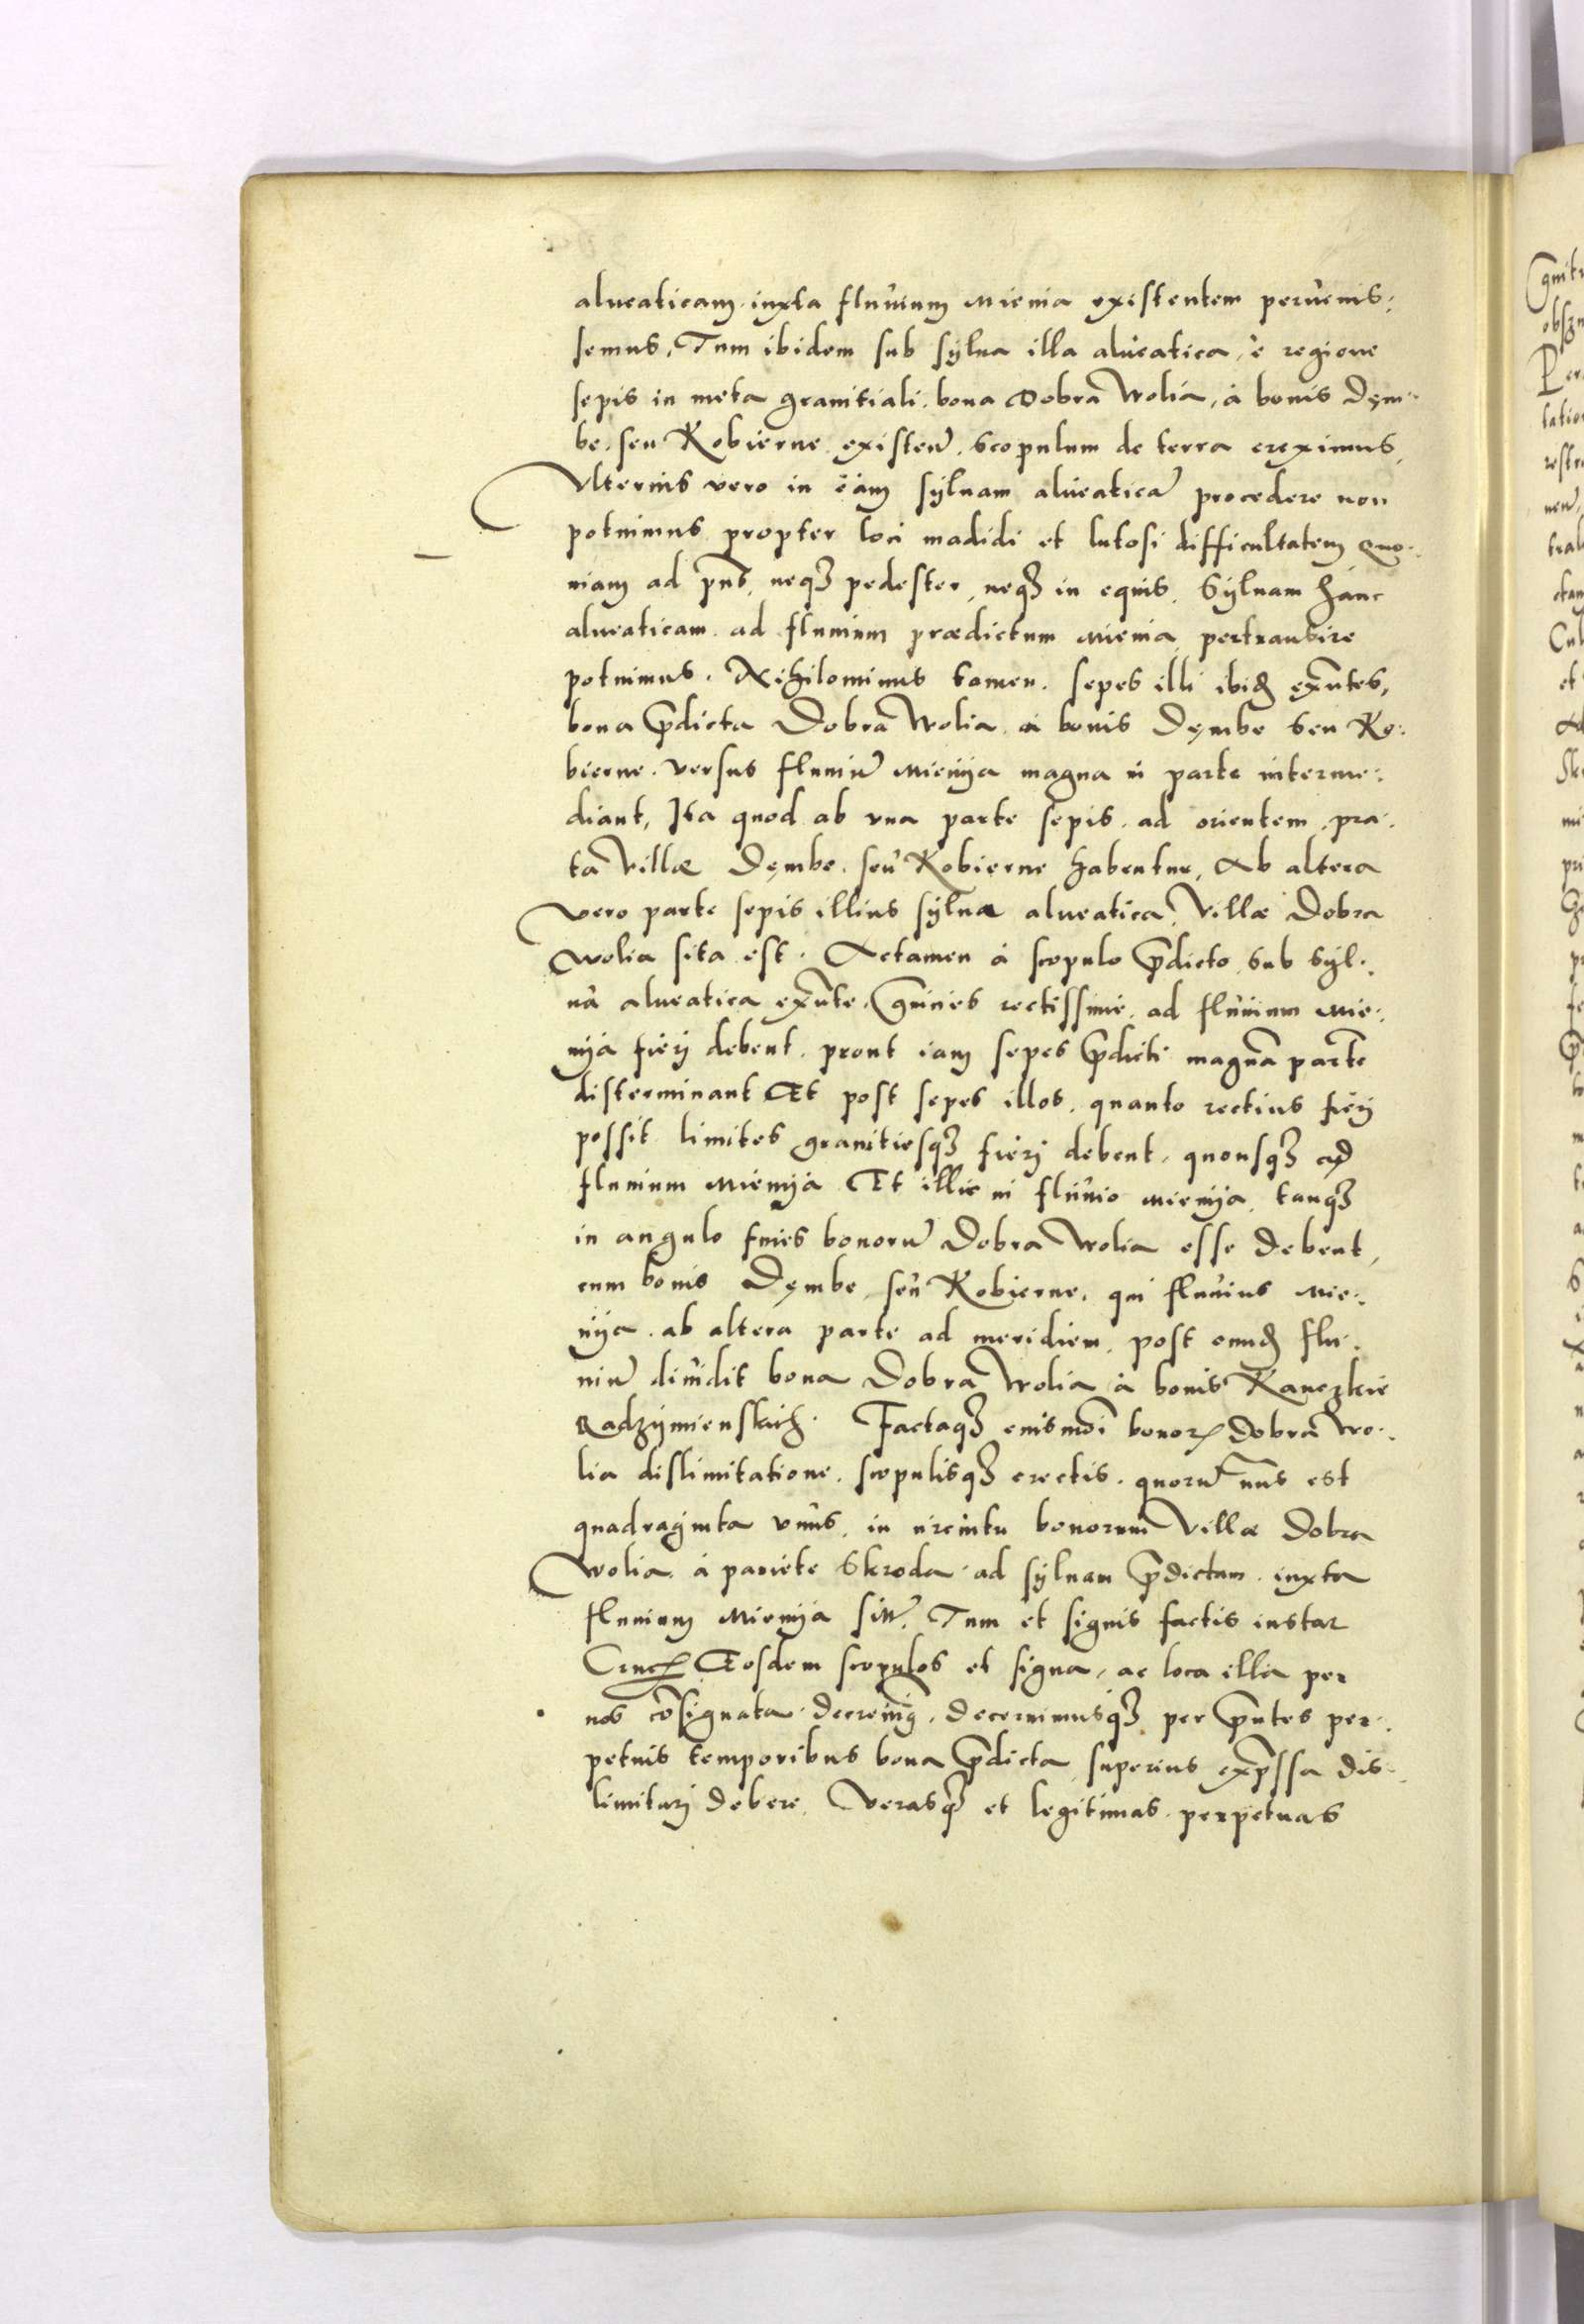 alueaticam iuxta fluuium Mienia existentem peruenis-
semus, Tum ibidem sub sylua illa alueatica, è regione
sepis in meta granitiali bona Dobra Wolia, à bonis Dęm-
be seu Kobierne existeñ. scopulum de terra ereximus,
Vlterius vero in eam syluam alueaticã procedere non
potuimus propter loci madidi et lutosi difficultatem quo-
niam ad pñs, neqȝ pedester, neqȝ in equis, Syluam hanc
alueaticam ad fluuium prædictum Mienia pertransire
potuimus. Nihilominus tamen sepes illi ibiđ exñtes,
bona p̃dicta Dobra Wolia à bonis Dęmbe seu Ko-
bierne versus fluuiũ Mienÿa magna in parte interme-
diant, Ita quod ab vna parte sepis ad orientem pra-
ta Villæ Dęmbe seu Kobierne habentur, Ab altera
vero parte sepis illius sylua alueatica Villæ Dobra
Wolia sita est. Attamen à scopulo p̃dicto sub Syl-
ua alueatica exñte, grãnicies rectissime ad fluuium Mie-
nÿa fierj debent, prout iam sepes p̃dicti magnã partẽ
disterminant Et post sepes illos quanto rectius fierj
possit limites granitiesqȝ fierj debent, quousqȝ ad
fluuium Mienÿa Et illic in fluuio Mienÿa tanqȝ
in angulo fines bonorũ Dobra Wolia esse debent,
cum bonis Dęmbe seu Kobierne, qui fluuius Mie-
nÿa ab altera parte ad meridiem post eunđ flu-
uiũ diuidit bona Dobra Wolia à bonis Kaneczkie
Radzÿmienskich. Factaqȝ eiusmõi bonorꝝ Dobra Wo-
lia dislimitatione, scopulisqȝ erectis quorũ nũs est
quadraginta vnus, in circuitu bonorum Villæ Dobra
Wolia à pariete Skroda ad syluam p̃dictam iuxta
fluuium Mienÿa sitt̃. Tum et signis factis instar
Crucꝝ Eosdem scopulos et signa, ac loca illa per
nos cõsignata decreuimꝰ, decernimusqȝ per p̃ntes per-
petuis temporibus bona p̃dicta superius exp̃ssa dis-
limitarj debere, Verasqȝ et legitimas perpetuas